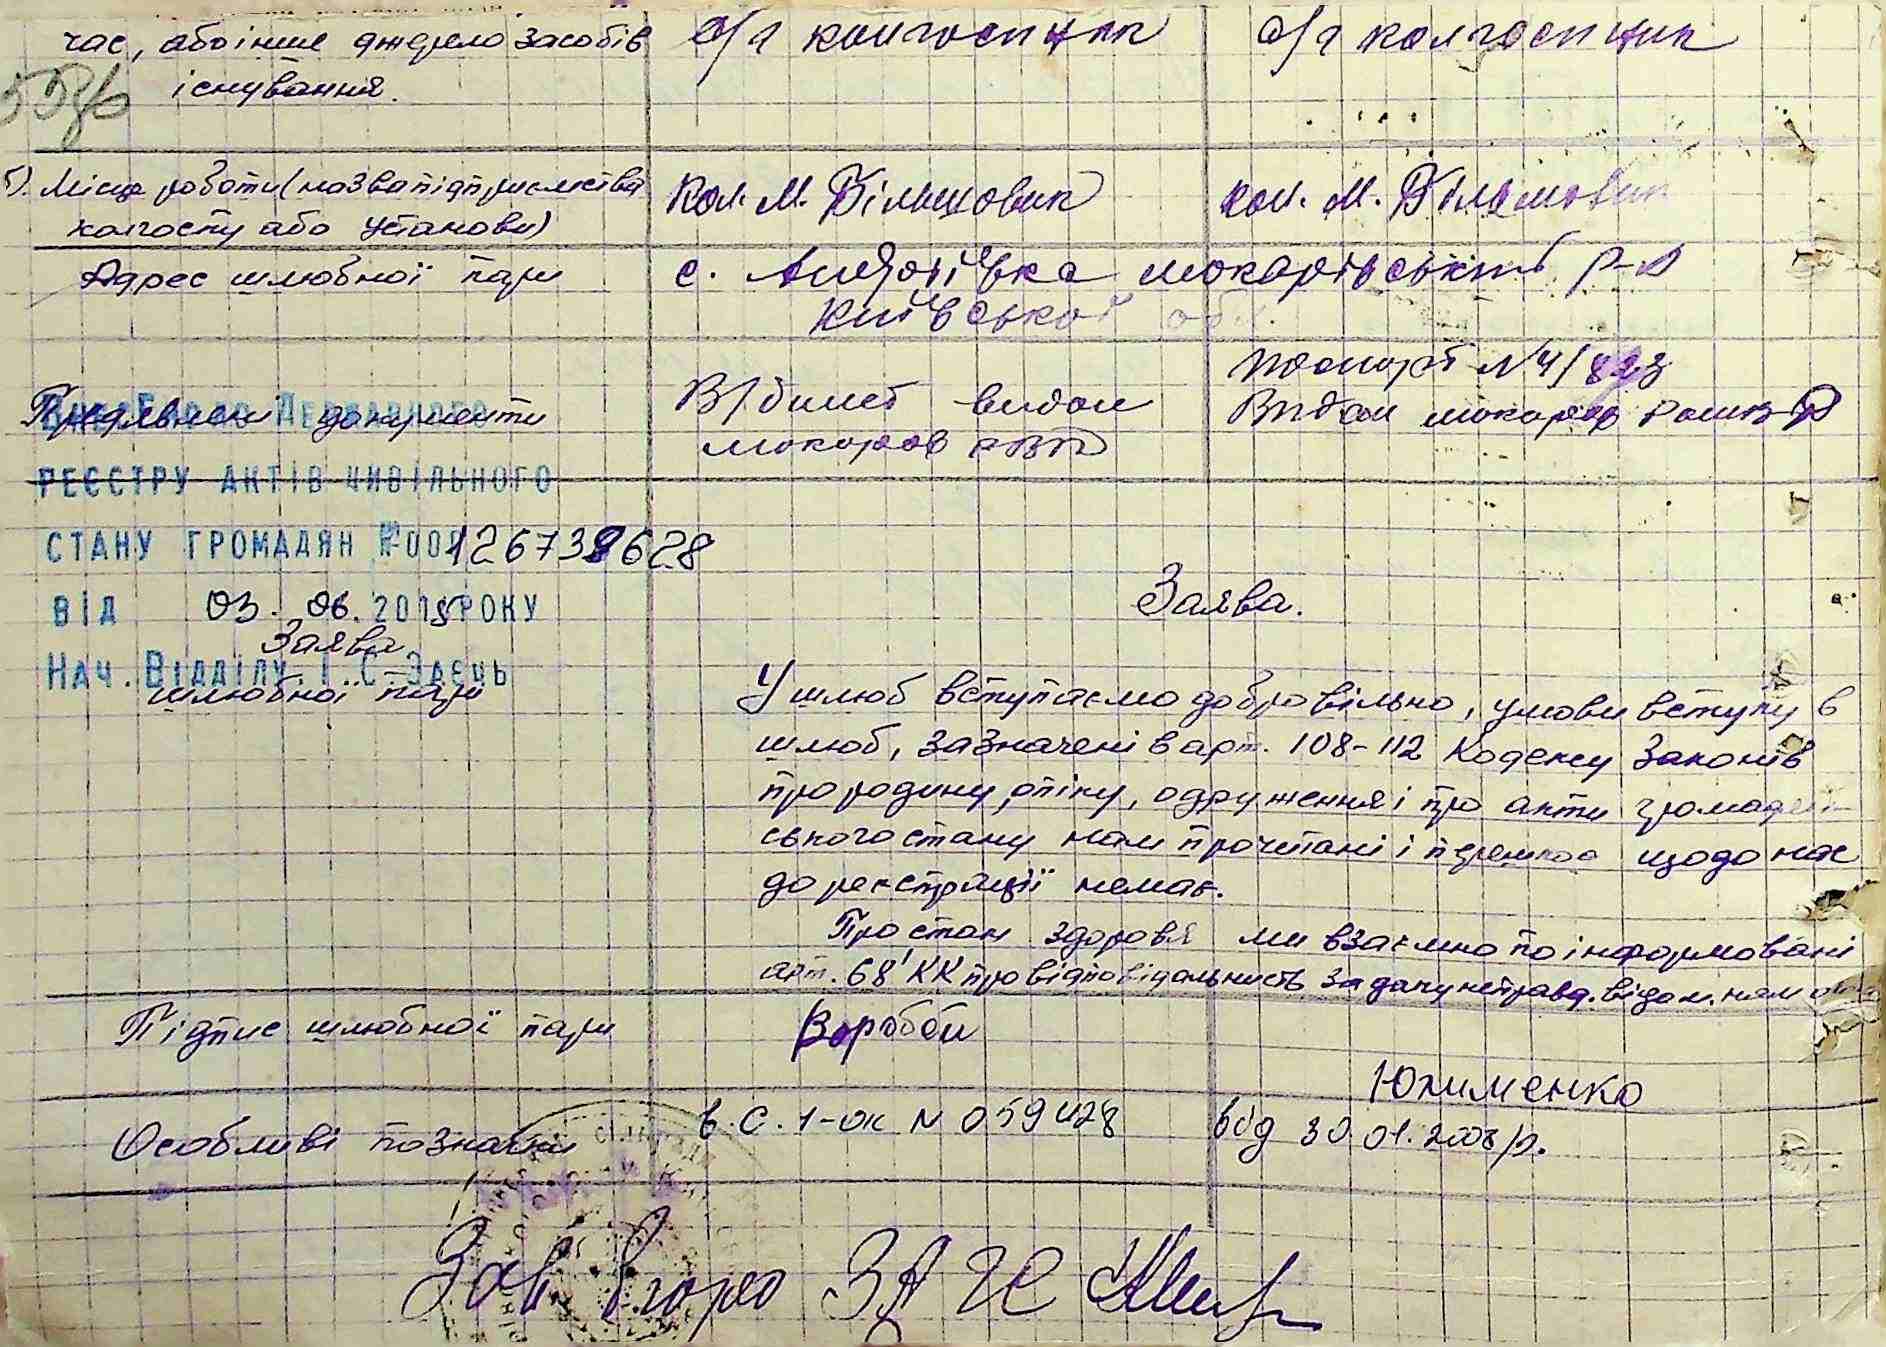 час, або інше джерело засобів
існування.
с/г колгоспник
с/г колгоспник
б). Місце роботи (назва підприємства
колгоспу або установи)
Кол. М. Більшовик
кол. М. Більшовик
Адрес шлюбної пари
с. Андріївка Макарівський р-н
Київської обл.
Пред'явлені документи
В/билет видан
Макаров РВК
Паспорт №
Видан Макаров
РЕЄСТРУ АКТІВ ЦИВІЛЬНОГО
СТАНУ ГРОМАДЯН №00126738628
ВІД 03. 06. 2015 РОКУ
НАЧ. ВІДДІЛУ І.С. ЗАЄЦЬ
Заява
шлюбної пари
Заява.
У шлюб вступаємо добровільно, умови вступу в
шлюб, зазначені в арт. 108-112 Кодексу Законів
про родину, опіку, одруження і про акти громадян-
ського стану нам прочитані і перешкод щодо нас
до реєстрації немає.
Про стан здоров'я ми взаємно поінформовані
арт. 68' КК про відповідальність за дачу неправд. відом. нам
Підпис шлюбної пари
Воробей
Юхименко
Особливі познаки
в. с. 1-ок N 059428
від 30.01.2008 р.
Зав бюро ЗАГС